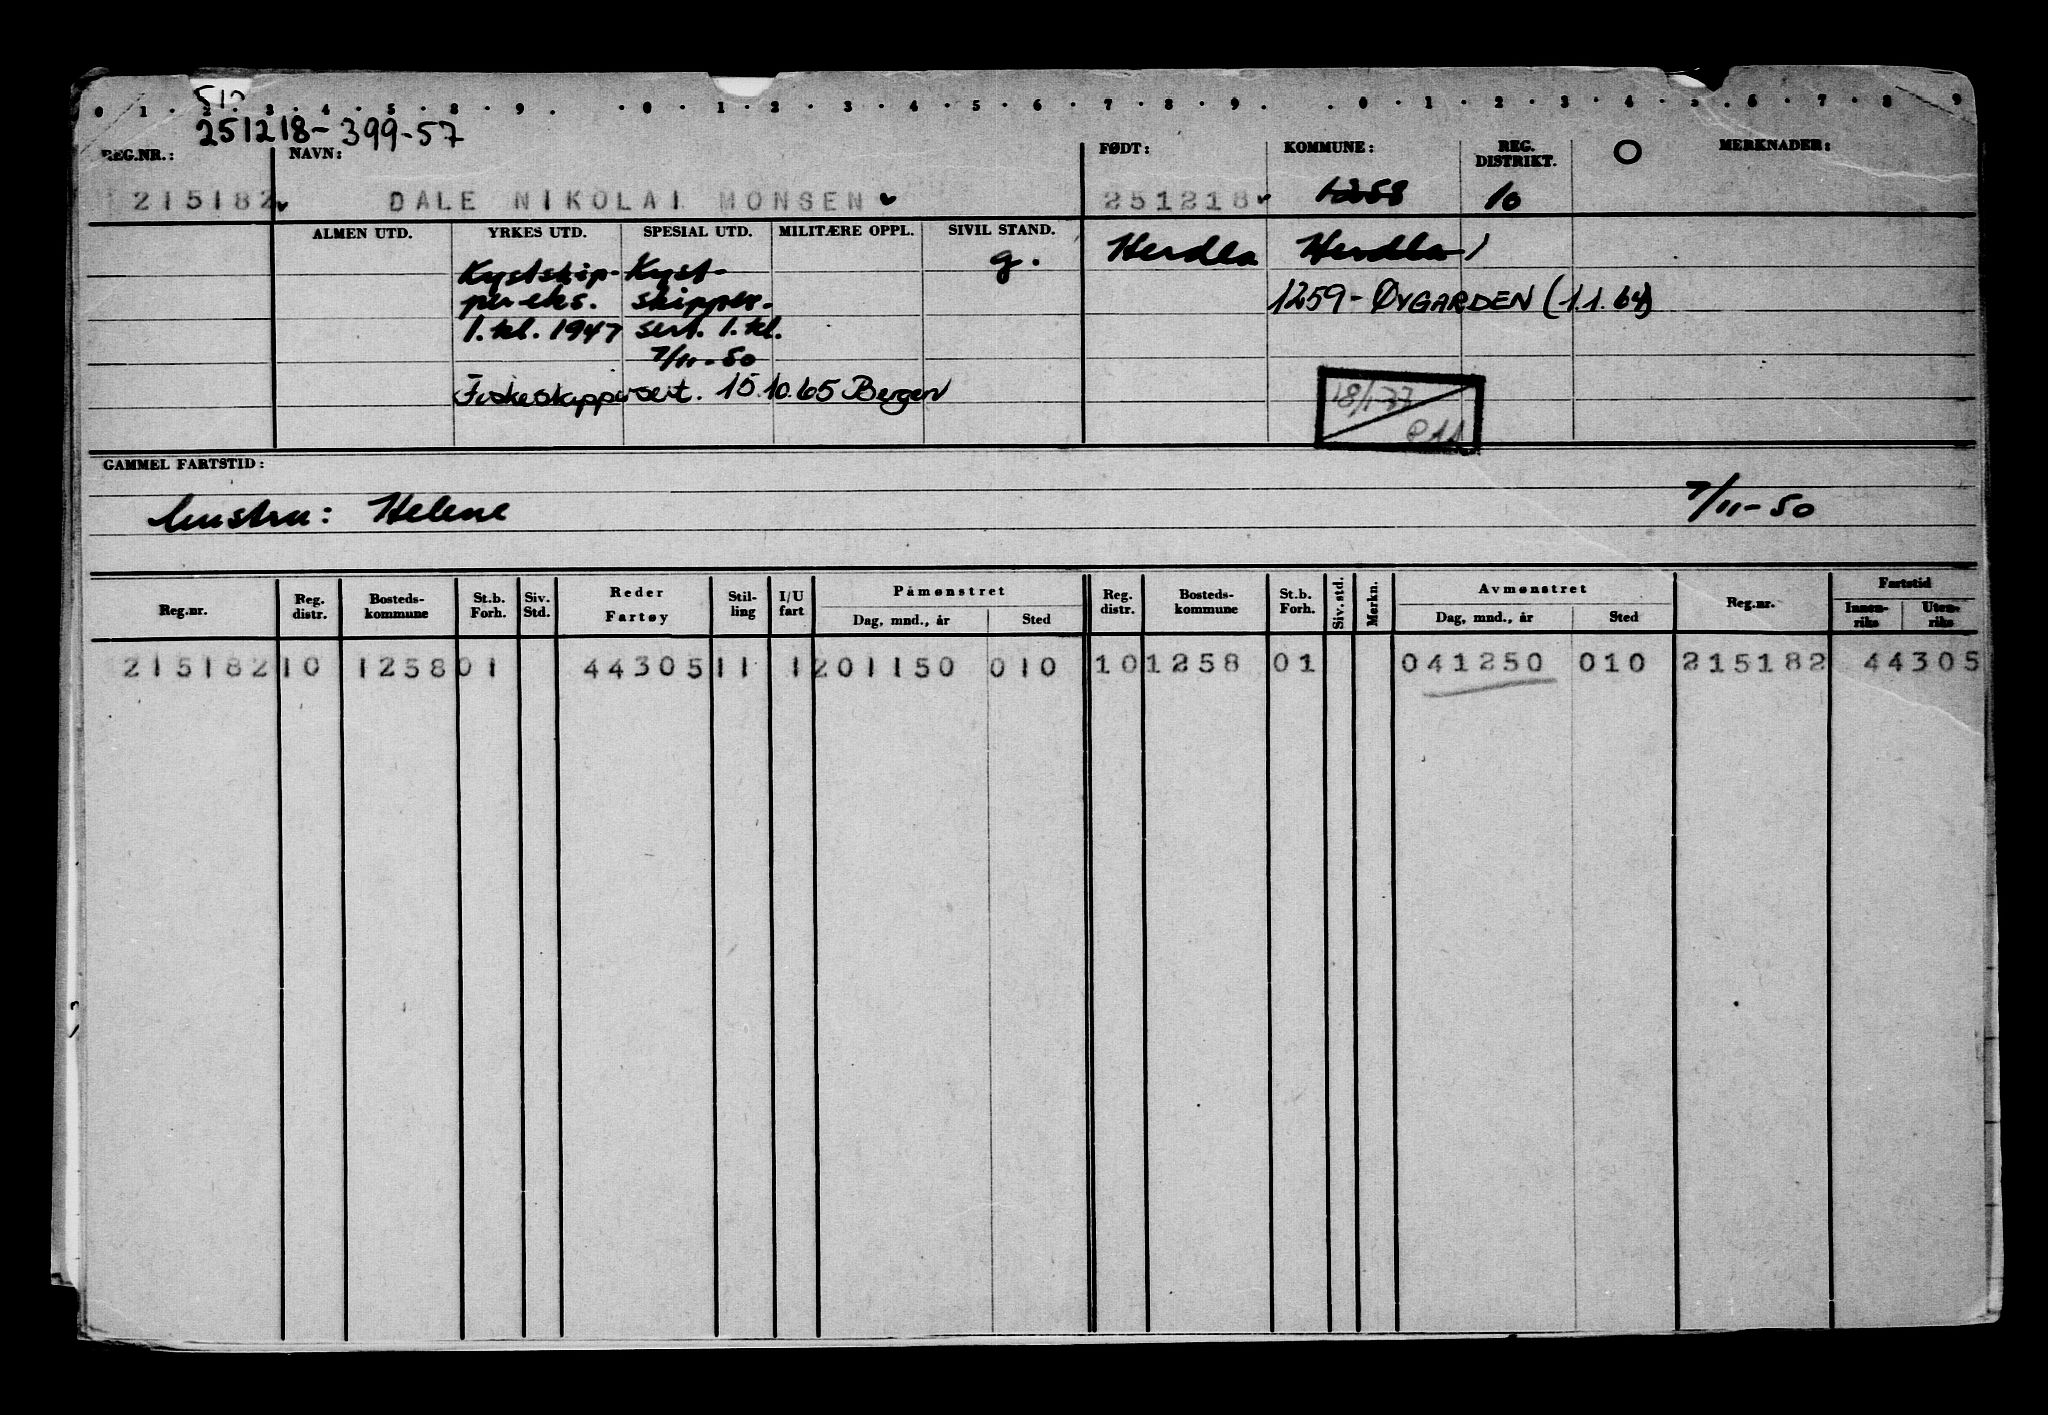 0 1 2 3 4 5 8 9 0 1 2 3 4 5 6 7 8 9 0 1 2 3 4 5 6 7 8 9
510
251218-399-57
REG.NR.: NAVN: FØDT: KOMMUNE: REG. DISTRIKT. O MERKNADER:
215182 DALE NIKOLAI MONSEN 251218 1258 10
ALMEN UTD. YRKES UTD. SPESIAL UTD. MILITÆRE OPPL. SIVIL STAND.
Kystskip- Kyst- g. Herdla Herdla
per eks. skipper- 1259 - ØYGARDEN (1.1.64)
1. kl. 1947 sert. 1. kl.
7/11-50
Fiskeskippersert. 15.10.65 Bergen
18/1-77
GAMMEL FARTSTID:
hustru: Helene 7/11-50
Reg.nr. Reg. distr. Bosteds-kommune St.b. Forh. Siv. Std. Reder Fartøy Stil-ling I/U fart Påmønstret Dag, mnd., år Sted Reg. distr. Bosteds-kommune St.b. Forh. Siv. std. Merkn. Avmønstret Dag, mnd., år Sted Reg.nr. Fartstid Innen-riks Uten-riks
215182 10 1258 01 44305 11 1 201150 010 10 1258 01 041250 010 215182 44305